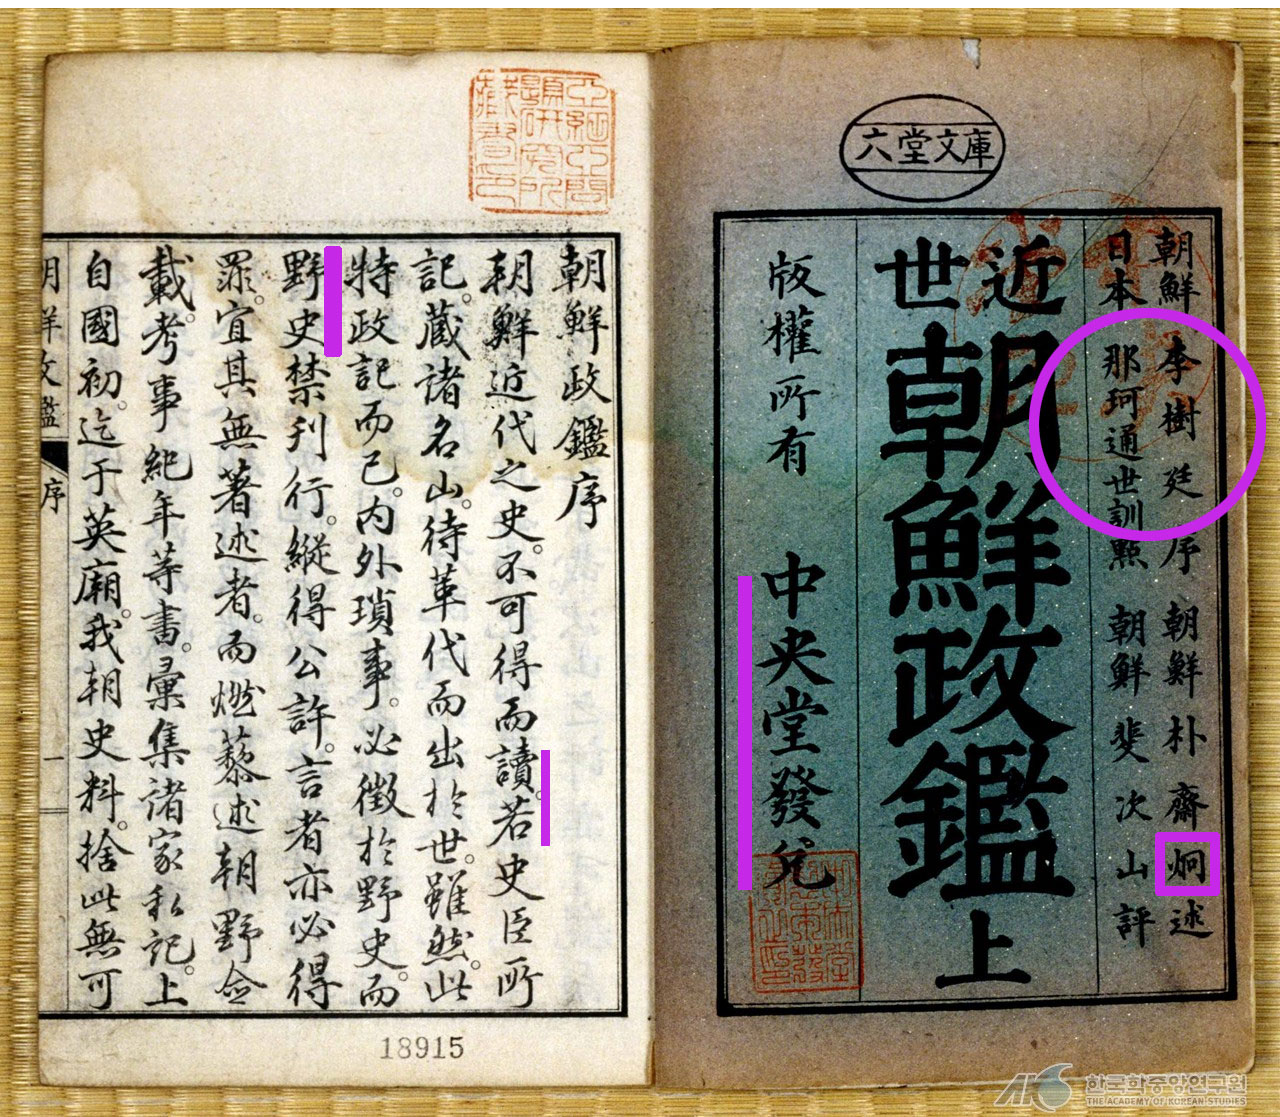 六堂文庫
朝鮮 李樹廷序 朝鮮 朴齋炯述
日本 那珂通世訓點 朝鮮 斐次山評
近世朝鮮政鑑上
版權所有 中央堂發兌
亞細亞問題研究所藏書印
朝鮮政鑑序
朝鮮近代之史。不可得而讀。若史臣所
記。藏諸名山。待革代而出於世。雖然。此
特政記而已。內外瑣事。必徵於野史。而
野史禁刊行。縱得公許。言者亦必得
罪。宜其無著述者。而燃藜述朝野僉
載。考事紀年等書。彙集諸家私記。上
自國初。迄于英廟。我朝史料。捨此無可
序 一
18915
한국학중앙연구원
THE ACADEMY OF KOREAN STUDIES